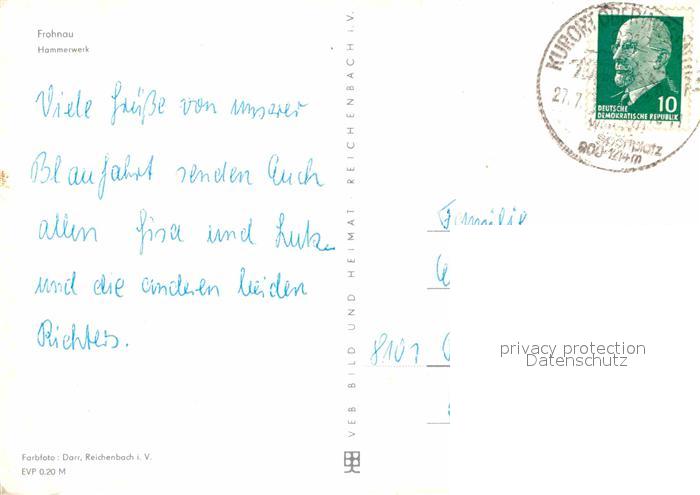 Frohnau
Hammerwerk
Viele Grüße von unserer
Blaufahrt senden Euch
allen Gisa und Lutz
und die anderen beiden
Richters.
Farbfoto: Darr, Reichenbach i. V.
EVP 0.20 M
VEB BILD UND HEIMAT · REICHENBACH i. V.
KURORT OBERW
27.7
Sportplatz
900-1214m
10
DEUTSCHE
DEMOKRATISCHE REPUBLIK
Familie
8101
privacy protection
Datenschutz